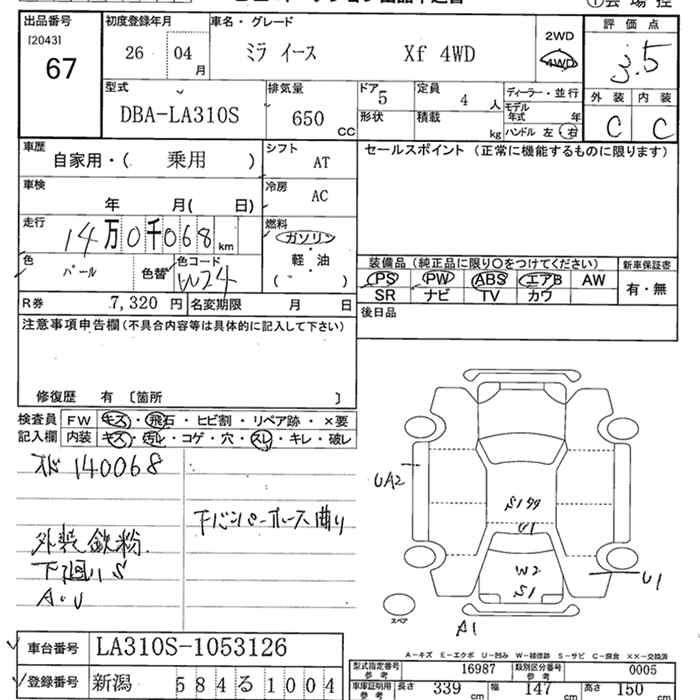 出品番号 初度登録年月 車名・グレード 評価点
[2043] 67
26 04 月 ミラ イース Xf 4WD
2WD
4WD
3.5
外装 内装
C C
型式 排気量 ドア 定員 ディーラー・並行
DBA-LA310S 650 CC 5 4 人
モデル年式 年
形状 積載 kg ハンドル 左 右
車歴 シフト セールスポイント (正常に機能するものに限ります)
自家用・( 乗用 ) AT
車検 冷房
年 月( 日) AC
走行 燃料
14万0千068km ガソリン
軽・油
( )
色 色替 色コード
パール W24
装備品 (純正品に限り○をつけてください) 新車保証書
PS PW ABS エアB AW 有・無
SR ナビ TV カワ
R券 7,320 円 名変期限 月 日
後日品
注意事項申告欄 (不具合内容等は具体的に記入して下さい)
修復歴 有 〔箇所 〕
検査員 FW キズ・飛石・ヒビ割・リペア跡・×要
記入欄 内装 キズ・汚レ・コゲ・穴・スレ・キレ・破レ
140068
下バンパーホース曲り
外装鉄粉
下廻りS
A・U
UA2
U1
W2
S1
U1
A1
スペア
A-キズ E-エクボ U-凹み W-補修跡 S-サビ C-腐食 ××-交換済
車台番号 LA310S-1053126
登録番号 新潟 584る1004
型式指定番号 参考 16987 類別区分番号 参考 0005
車庫証明用 参考 長さ 339 cm 幅 147 cm 高さ 150 cm